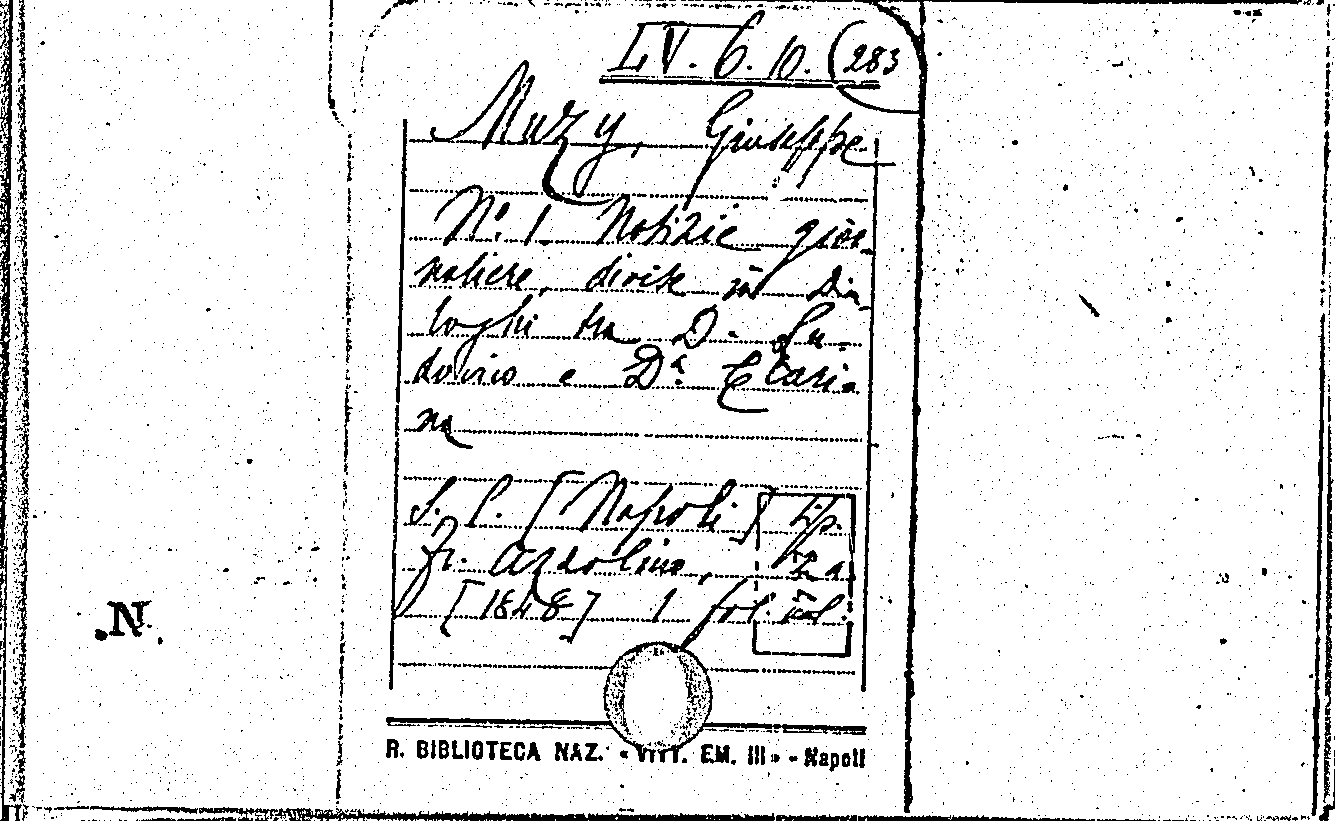 LV. 6. 10. (283
Muzy, Giuseppe
Nº. 1. Notizie gior-
naliere, divise in Dia-
loghi tra D. Lu-
dovico e Dª. Clari-
na
S. l. [Napoli] tip.
Fr. Azzolino, s. a.
[1848] 1 fol. vol.
.N.
R. BIBLIOTECA NAZ. « VITT. EM. III » - Napoli